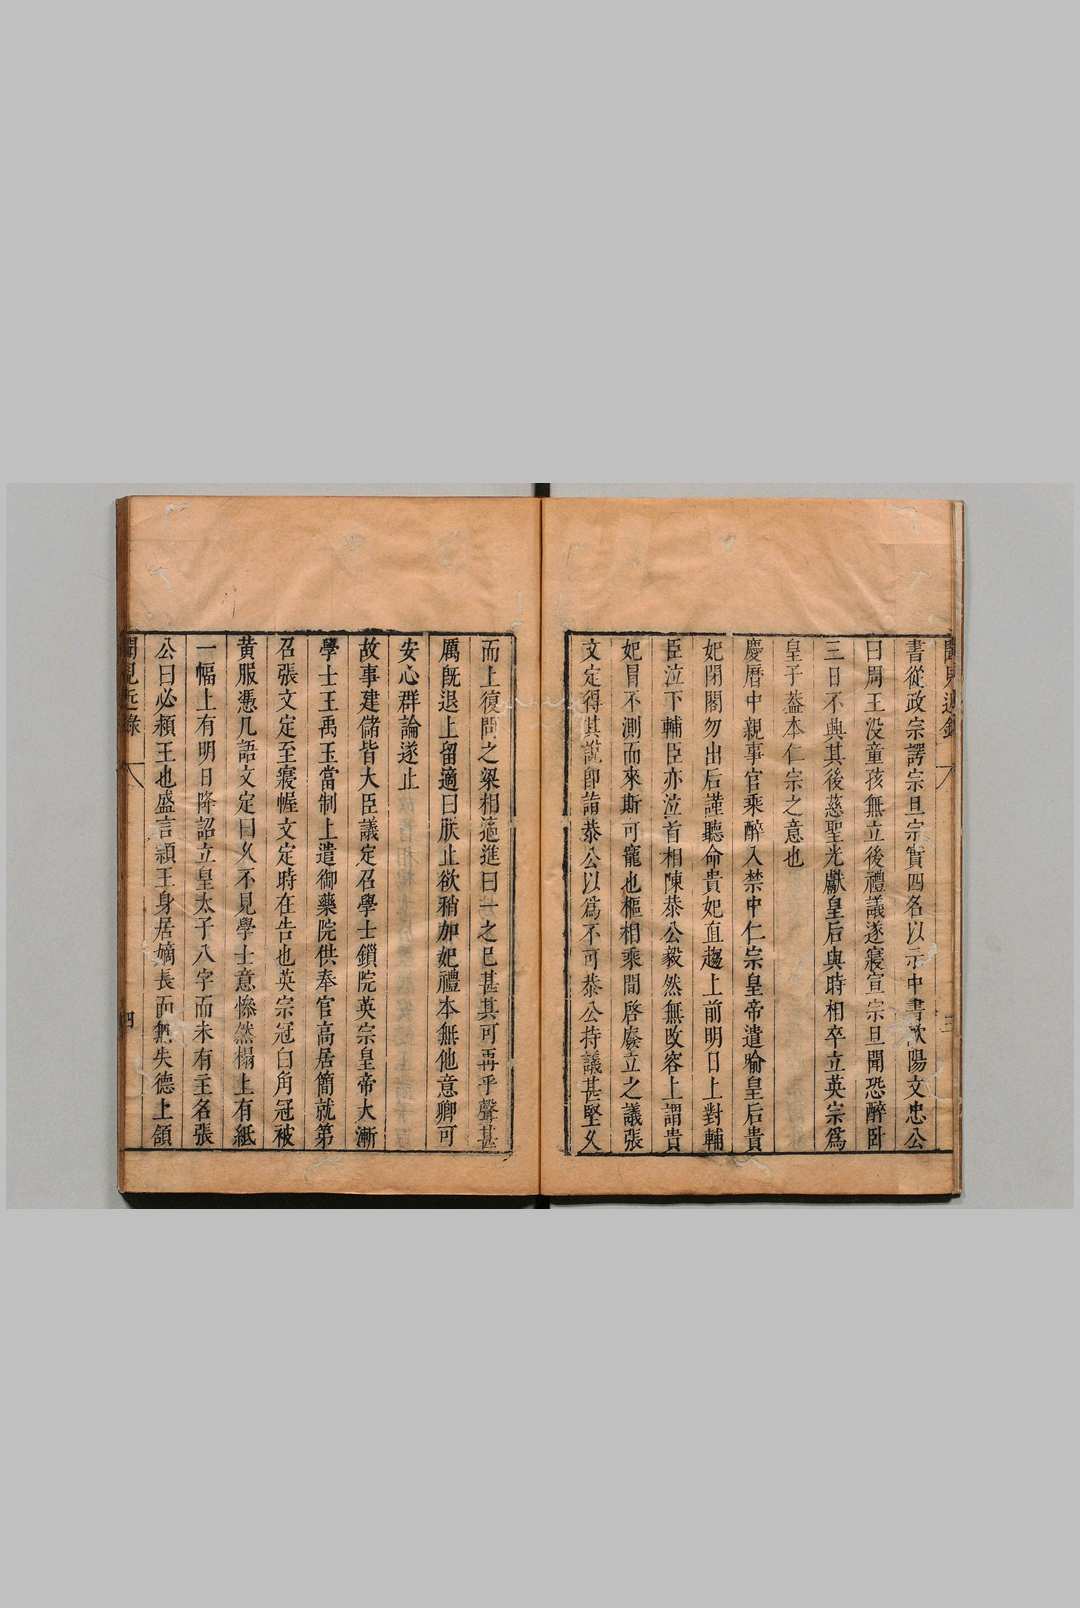 聞見近錄
三
書從政宗諤宗旦宗實四名以示中書歐陽文忠公
曰周王没童孩無立後禮議遂寢宣宗旦聞恐醉卧
三日不興其後慈聖光獻皇后與時相卒立英宗爲
皇子葢本仁宗之意也
慶曆中親事官乘醉入禁中仁宗皇帝遣喻皇后貴
妃閉閤勿出后謹聽命貴妃直趨上前明日上對輔
臣泣下輔臣亦泣首相陳恭公毅然無改容上謂貴
妃冒不測而來斯可寵也樞相乘間啓廢立之議張
文定得其說卽詣恭公以爲不可恭公持議甚堅久
而上復問之梁相適進曰一之已甚其可再乎聲甚
厲旣退上留適曰朕止欲稍加妃禮本無他意卿可
安心群論遂止
故事建儲皆大臣議定召學士鎖院英宗皇帝大漸
學士王禹玉當制上遣御藥院供奉官高居簡就第
召張文定至寢幄文定時在告也英宗冠白角冠被
黃服憑几語文定曰久不見學士意慘然榻上有紙
一幅上有明日降詔立皇太子八字而未有主名張
公曰必頴王也盛言頴王身居嫡長而無失德上頷
聞見近錄
四